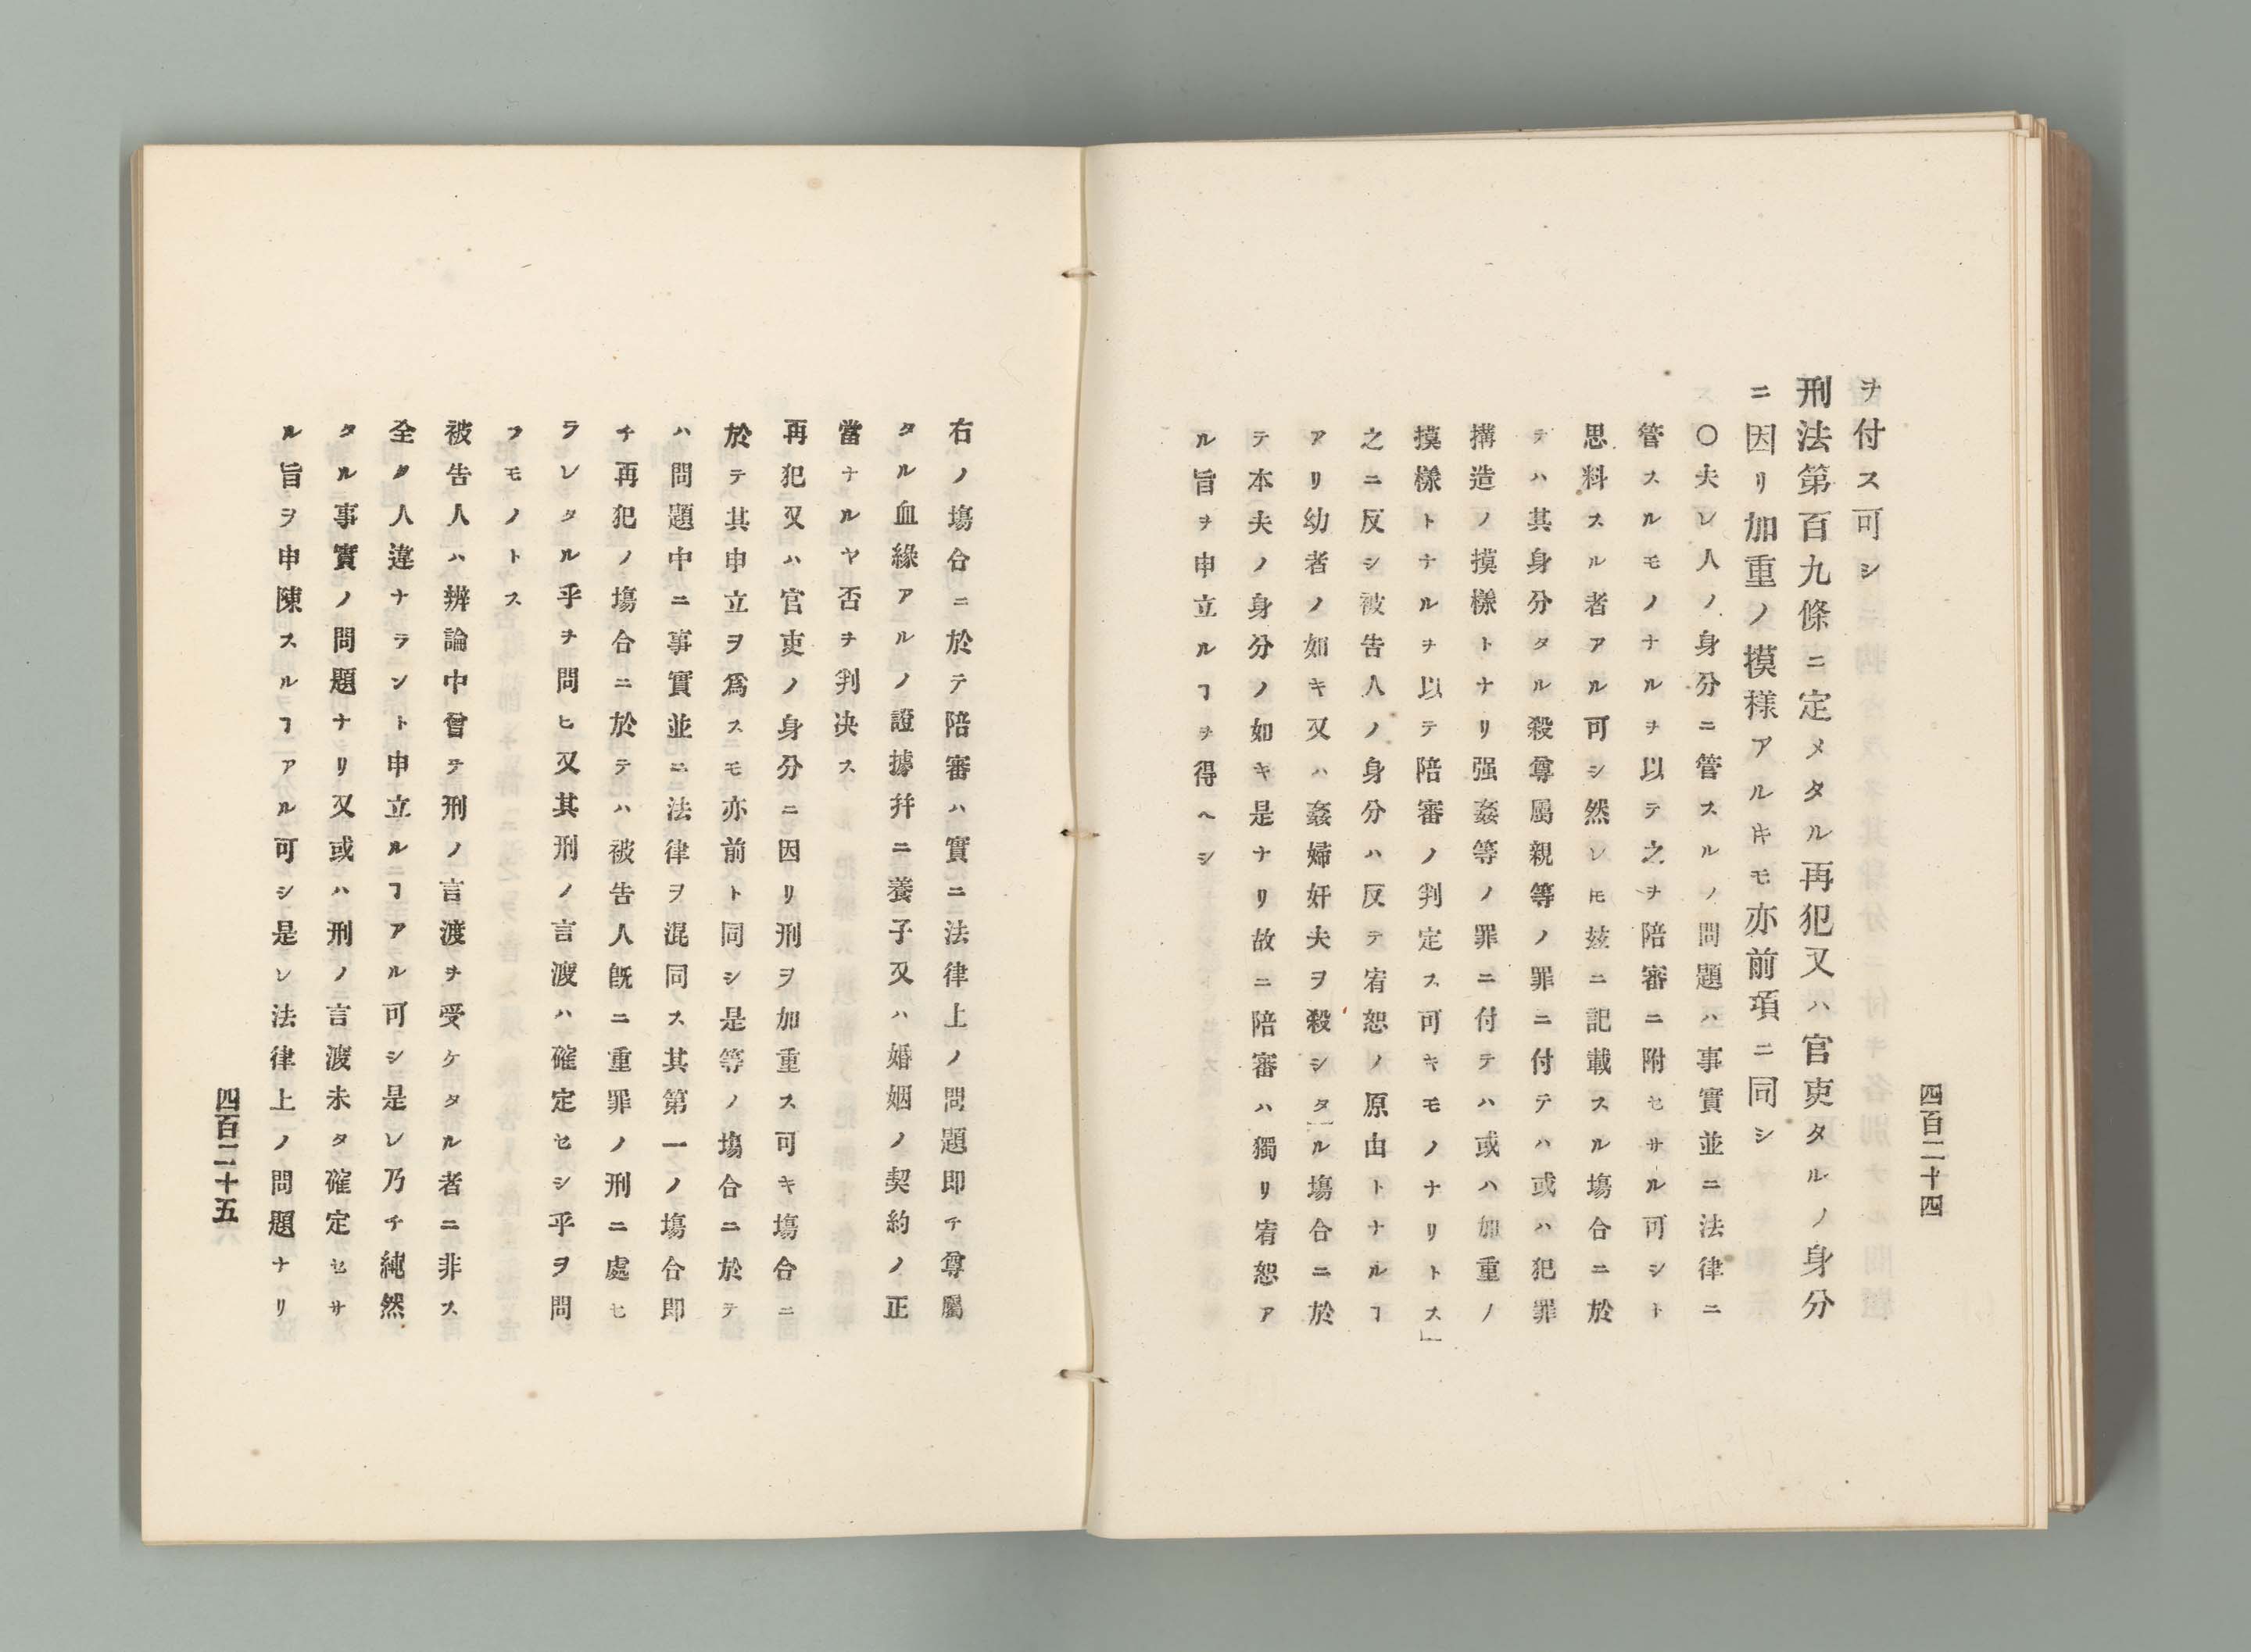 ヲ付ス可シ
刑法第百九條ニ定メタル再犯又ハ官吏タルノ身分
ニ因リ加重ノ摸樣アルヰモ亦前項ニ同シ
〇夫レ人ノ身分ニ管スルノ問題ハ事實並ニ法律ニ
管スルモノナルヲ以テ之ヲ陪審ニ附セサル可シト
思料スル者アル可シ然レ𪜈玆ニ記載スル塲合ニ於
テハ其身分タル殺尊屬親等ノ罪ニ付テハ或ハ犯罪
搆造ノ摸樣トナリ强姦等ノ罪ニ付テハ或ハ加重ノ
摸樣トナルヲ以テ陪審ノ判定ス可キモノナリトス」
之ニ反シ被告人ノ身分ハ反テ宥恕ノ原由トナルヿ
アリ幼者ノ如キ又ハ姦婦奸夫ヲ殺シタル塲合ニ於
テ本夫ノ身分ノ如キ是ナリ故ニ陪審ハ獨リ宥恕ア
ル旨ヲ申立ルヿヲ得ヘシ
四百二十四
右ノ塲合ニ於テ陪審ハ實ニ法律上ノ問題即チ尊屬
タル血緣アルノ證據幷ニ養子又ハ婚姻ノ契約ノ正
當ナルヤ否ヲ判决ス
再犯又ハ官吏ノ身分ニ因リ刑ヲ加重ス可キ塲合ニ
於テ其申立ヲ爲スモ亦前ト同シ是等ノ塲合ニ於テ
ハ問題中ニ事實並ニ法律ヲ混同ス其第一ノ塲合即
チ再犯ノ塲合ニ於テハ被告人旣ニ重罪ノ刑ニ處セ
ラレタル乎ヲ問ヒ又其刑ノ言渡ハ確定セシ乎ヲ問
フモノトス
被告人ハ辨論中曾テ刑ノ言渡ヲ受ケタル者ニ非ス
全タ人違ナラント申立ルヿアル可シ是レ乃チ純然
タル事實ノ問題ナリ又或ハ刑ノ言渡未タ確定セサ
ル旨ヲ申陳スルヿアル可シ是レ法律上ノ問題ナリ
四百二十五